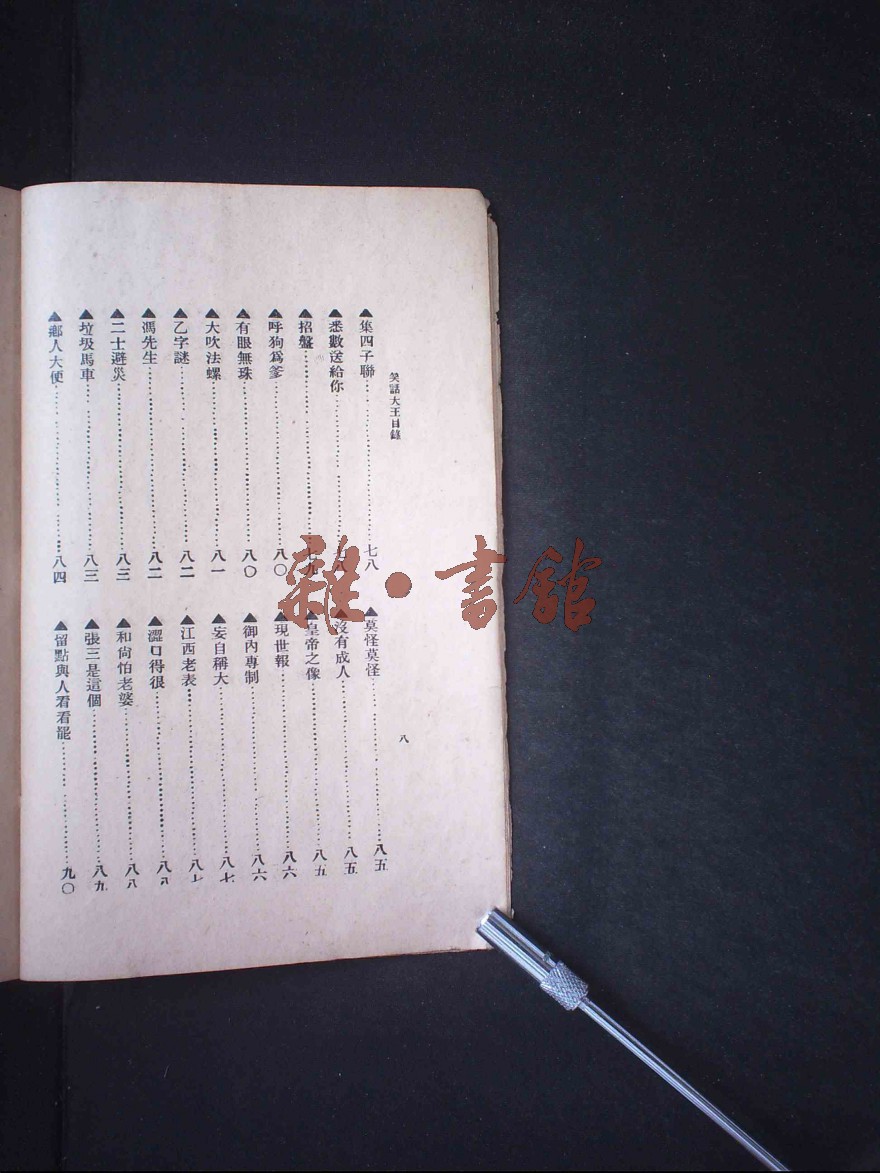 笑話大王目錄
▲集四子聯……七八
▲悉數送給你……七八
▲招盤……七九
▲呼狗爲爹……八〇
▲有眼無珠……八〇
▲大吹法螺……八一
▲乙字謎……八二
▲馮先生……八二
▲二士避災……八三
▲垃圾馬車……八三
▲鄉人大便……八四
▲莫怪莫怪……八五
▲沒有成人……八五
▲皇帝之像……八五
▲現世報……八六
▲御內專制……八六
▲妄自稱大……八七
▲江西老表……八七
▲澀口得很……八八
▲和尙怕老婆……八八
▲張三是這個……八九
▲留點與人看看罷……九〇
八
雜·書館